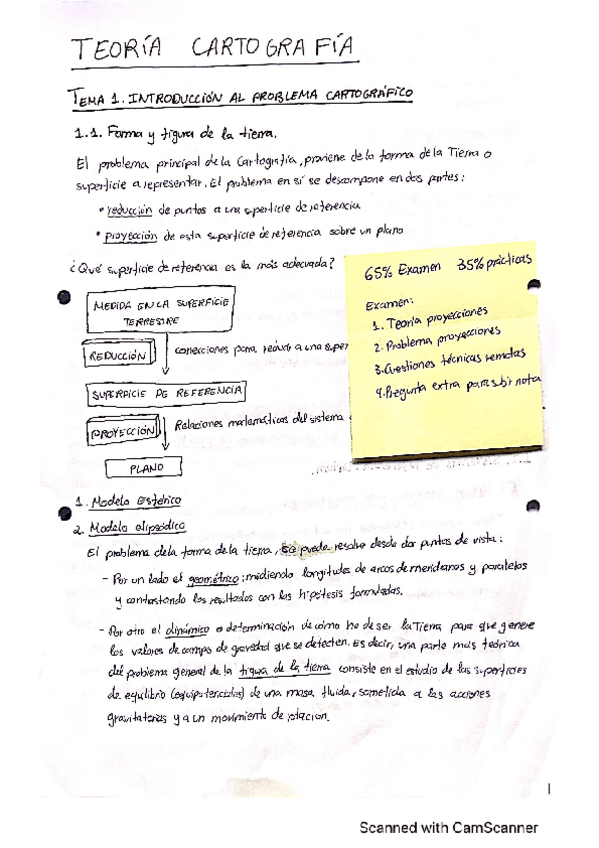 TEORÍA CARTOGRAFÍA
TEMA 1. INTRODUCCIÓN AL PROBLEMA CARTOGRÁFICO
1.1. Forma y figura de la tierra.
El problema principal de la Cartografía, proviene de la forma de la Tierra o
superficie a representar. El problema en sí se descompone en dos partes:
• reducción de puntos a una superficie de referencia
• proyección de esta superficie de referencia sobre un plano
¿Qué superficie de referencia es la más adecuada?
MEDIDA EN LA SUPERFICIE
TERRESTRE
REDUCCIÓN
correcciones para reducir a una super
SUPERFICIE DE REFERENCIA
PROYECCIÓN
Relaciones matemáticas del sistema
PLANO
65% Examen 35% prácticas
Examen:
1. Teoría proyecciones
2. Problema proyecciones
3. Cuestiones técnicas remotas
4. Pregunta extra para subir nota
1. Modelo Esférico
2. Modelo elipsódico
El problema de la forma de la tierra, se puede resolver desde dos puntos de vista:
- Por un lado el geométrico: midiendo longitudes de arcos de meridianos y paralelos
y contrastando los resultados con las hipótesis formuladas.
- Por otro el dinámico o determinación de como ha de ser la Tierra para que genere
los valores de campo de gravedad que se detecten. Es decir, una parte más teórica
del problema general de la figura de la tierra consiste en el estudio de las superficies
de equilibrio (equipotenciales) de una masa fluida, sometida a las acciones
gravitatorias y a un movimiento de rotación.
1
Scanned with CamScanner